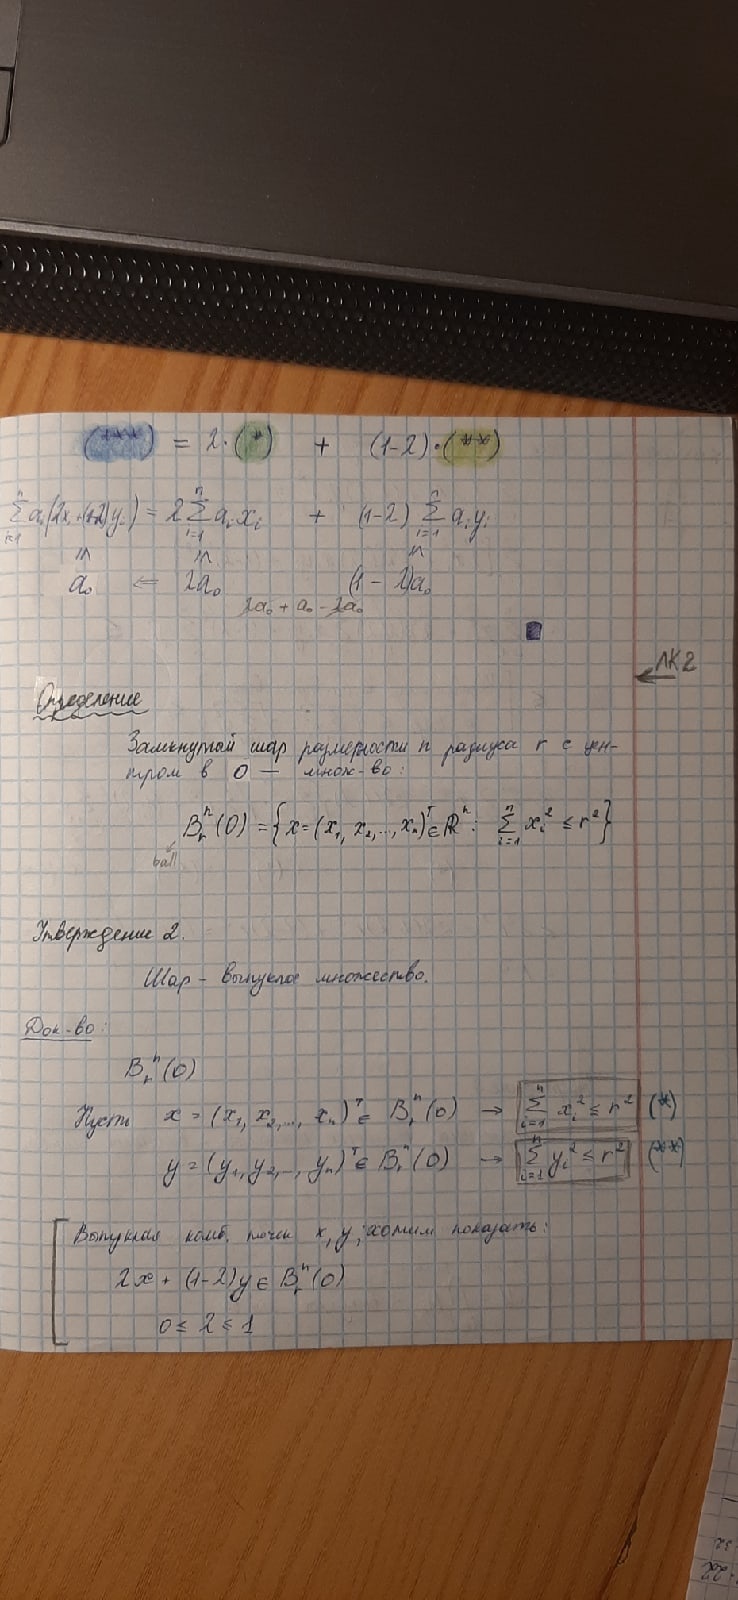 (***) = λ·(*) + (1-λ)·(**)
∑ᵢ₌₁ⁿ aᵢ(λxᵢ+(1-λ)yᵢ) = λ∑ᵢ₌₁ⁿ aᵢxᵢ + (1-λ)∑ᵢ₌₁ⁿ aᵢyᵢ
a₀ ⇐ λa₀ (1-λ)a₀
λa₀ + a₀ - λa₀
ЛК2
Определение
Замкнутый шар размерности n радиуса r с цен-
тром в 0 — множ-во:
Bᵣⁿ(0) = {x=(x₁, x₂,..., xₙ)ᵀ∈ℝⁿ: ∑ᵢ₌₁ⁿ xᵢ² ≤ r²}
ball
Утверждение 2.
Шар - выпуклое множество.
Док-во:
Bᵣⁿ(0)
Пусть x = (x₁, x₂,..., xₙ)ᵀ∈ Bᵣⁿ(0) → ∑ᵢ₌₁ⁿ xᵢ² ≤ r² (*)
y = (y₁, y₂,.., yₙ)ᵀ∈ Bᵣⁿ(0) → ∑ᵢ₌₁ⁿ yᵢ² ≤ r² (**)
Выпуклая комб. точек x, y; хотим показать:
λx + (1-λ)y ∈ Bᵣⁿ(0)
0 ≤ λ ≤ 1